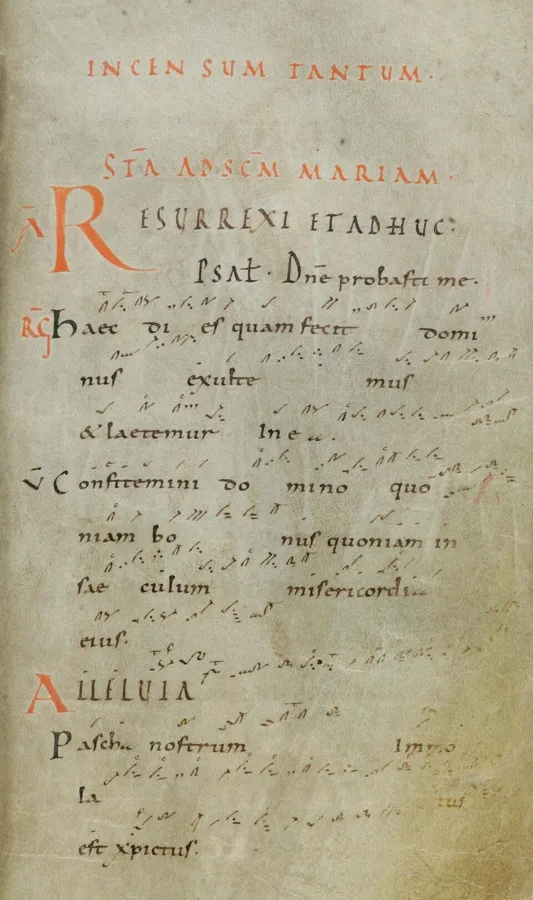 INCENSUM TANTUM.
STĀ AD SCM̄ MARIAM.
Ā RESURREXI ET ADHUC:
PSAŁ. Dn̄e probasti me.
RG̅ Haec di es quam fecit domi
nus exulte mus
& laetemur In ea.
V̄ Confitemini domino quo
niam bo nus quoniam in
sae culum misericordia
eius.
ALLELUIA
Pascha nostrum Immo
la tus
est xp̄ictus.